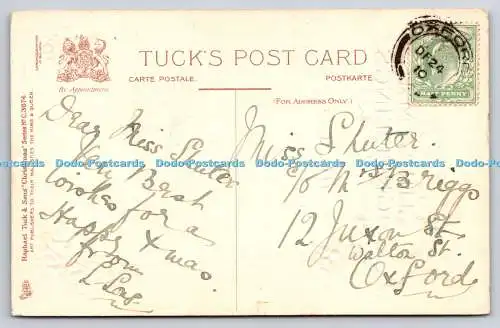 TUCK'S POST CARD
CARTE POSTALE.
POSTKARTE.
By Appointment
(FOR ADDRESS ONLY.)
Raphael Tuck & Sons' "Christmas" Series No C.3674.
ART PUBLISHERS TO THEIR MAJESTIES THE KING & QUEEN
OXFORD
DE 24
HALF PENNY
Dear Miss Shuter
Very Best
wishes for a
Happy Xmas.
from
Miss Shuter.
c/o Mrs Briggs
12 Juxon St.
Walton St.
Oxford
Dodo-Postcards Dodo-Postcards Dodo-Postcards Dodo-Postcards Dodo-Postcards